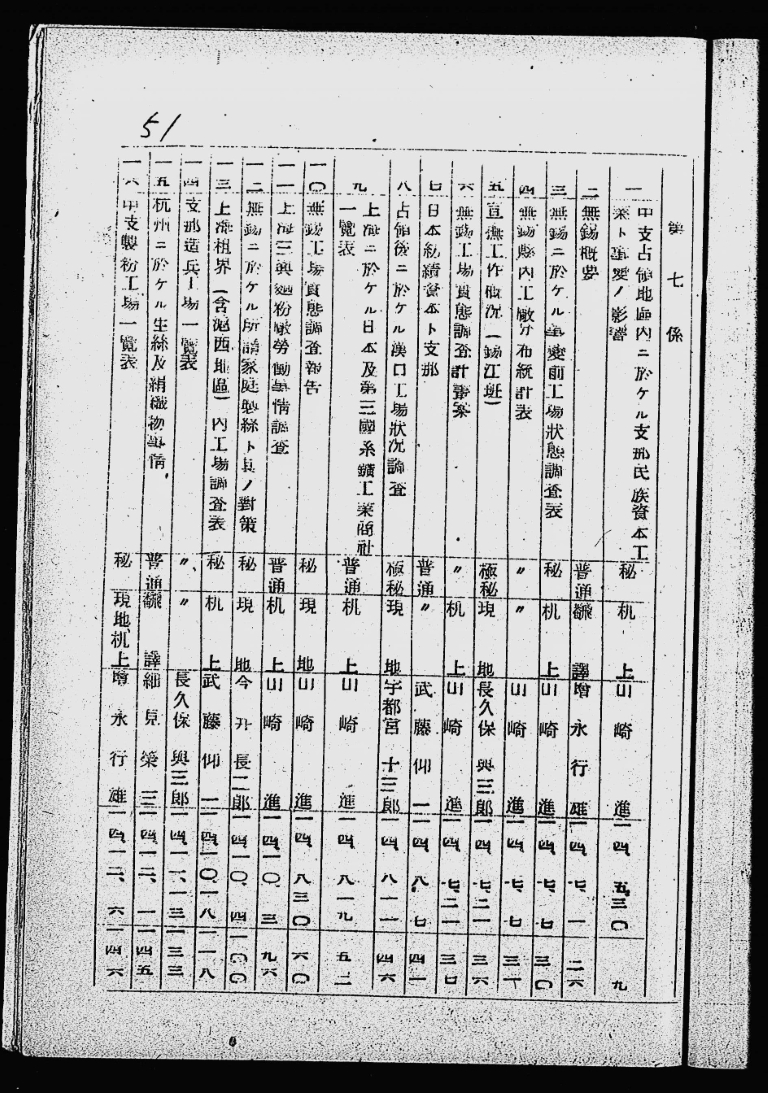 51
第七係
一 中支占領地區內ニ於ケル支那民族資本工
業ト事變ノ影響 秘 机上 山崎進 一四、五、三〇 九
二 無錫概要 普通 飜譯 增永行雄 一四、七、一 二六
三 無錫ニ於ケル事變前工場狀態調査表 秘 机上 山崎進 一四、七、七 三〇
四 無錫縣內工廠分布統計表 〃 〃 山崎進 一四、七、七
五 宣撫工作概況(錫江班) 極秘 現地 長久保與三郎 一四、七、二一 三六
六 無錫工場實態調査計畫案 〃 机上 山崎進 一四、七、二一 三七
七 日本紡績資本ト支那 普通 〃 武藤仰一 一四、八、七 四一
八 占領後ニ於ケル漢口工場狀況調査 極秘 現地 宇都宮十三郎 一四、八、一一 四六
九 上海ニ於ケル日本及第三國系鑛工業商社
一覽表 普通 机上 山崎進 一四、八、一九 五二
一〇 無錫工場實態調査報告 秘 現地 山崎進 一四、八、三〇 六〇
一一 上海三興麵粉廠勞働事情調査 普通 机上 山崎進 一四、一〇、三 九六
一二 無錫ニ於ケル所謂家庭製絲ト其ノ對策 秘 現地 今井長二郎 一四、一〇、四 一〇〇
一三 上海租界(含滬西地區)內工場調査表 秘 机上 武藤仰一 一四、一〇、一八 一一八
一四 支那造兵工場一覽表 〃 〃 長久保與三郎 一四、一一、一三 一三三
一五 杭州ニ於ケル生絲及絹織物事情 普通 飜譯 細見榮三 一四、一二、一 一四五
一六 中支製粉工場一覽表 秘 現地机上 增永行雄 一四、一二、六 一四六